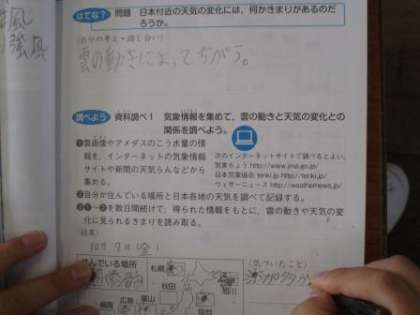 強風
はてな? 問題 日本付近の天気の変化には，何かきまりがあるのだ
ろうか。
(自分の考え・話し合い)
雲の動きによってちがう。
調べよう 資料調べ1 気象情報を集めて，雲の動きと天気の変化との
関係を調べよう。
①雲画像やアメダスのこう水量の情
報を，インターネットの気象情報
サイトや新聞の天気らんなどから
集める。
次のインターネットサイトで調べるとよい。
気象ちょう http://www.jma.go.jp/
日本気象協会 tenki.jp http://tenki.jp/
ウェザーニュース http://weathernews.jp/
②自分が住んでいる場所と日本各地の天気を調べて記録する。
③①～②を数日間続けて，得られた情報をもとに，雲の動きや天気の変
化に見られるきまりを読み取る。
(結果)
10月7日(金)
住んでいる場所
札幌
旭川
秋田
仙台
富山
広島
福岡
(気づいたこと)